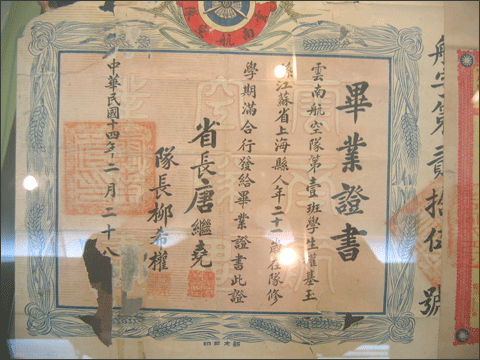 畢業證書
雲南航空隊第壹班學生權基玉
江蘇省上海縣人年二十一歲在隊修
學期滿合行發給畢業證書此證
省長唐繼堯
隊長柳希權
中華民國十四年二月二十八
航字第貳拾伍號